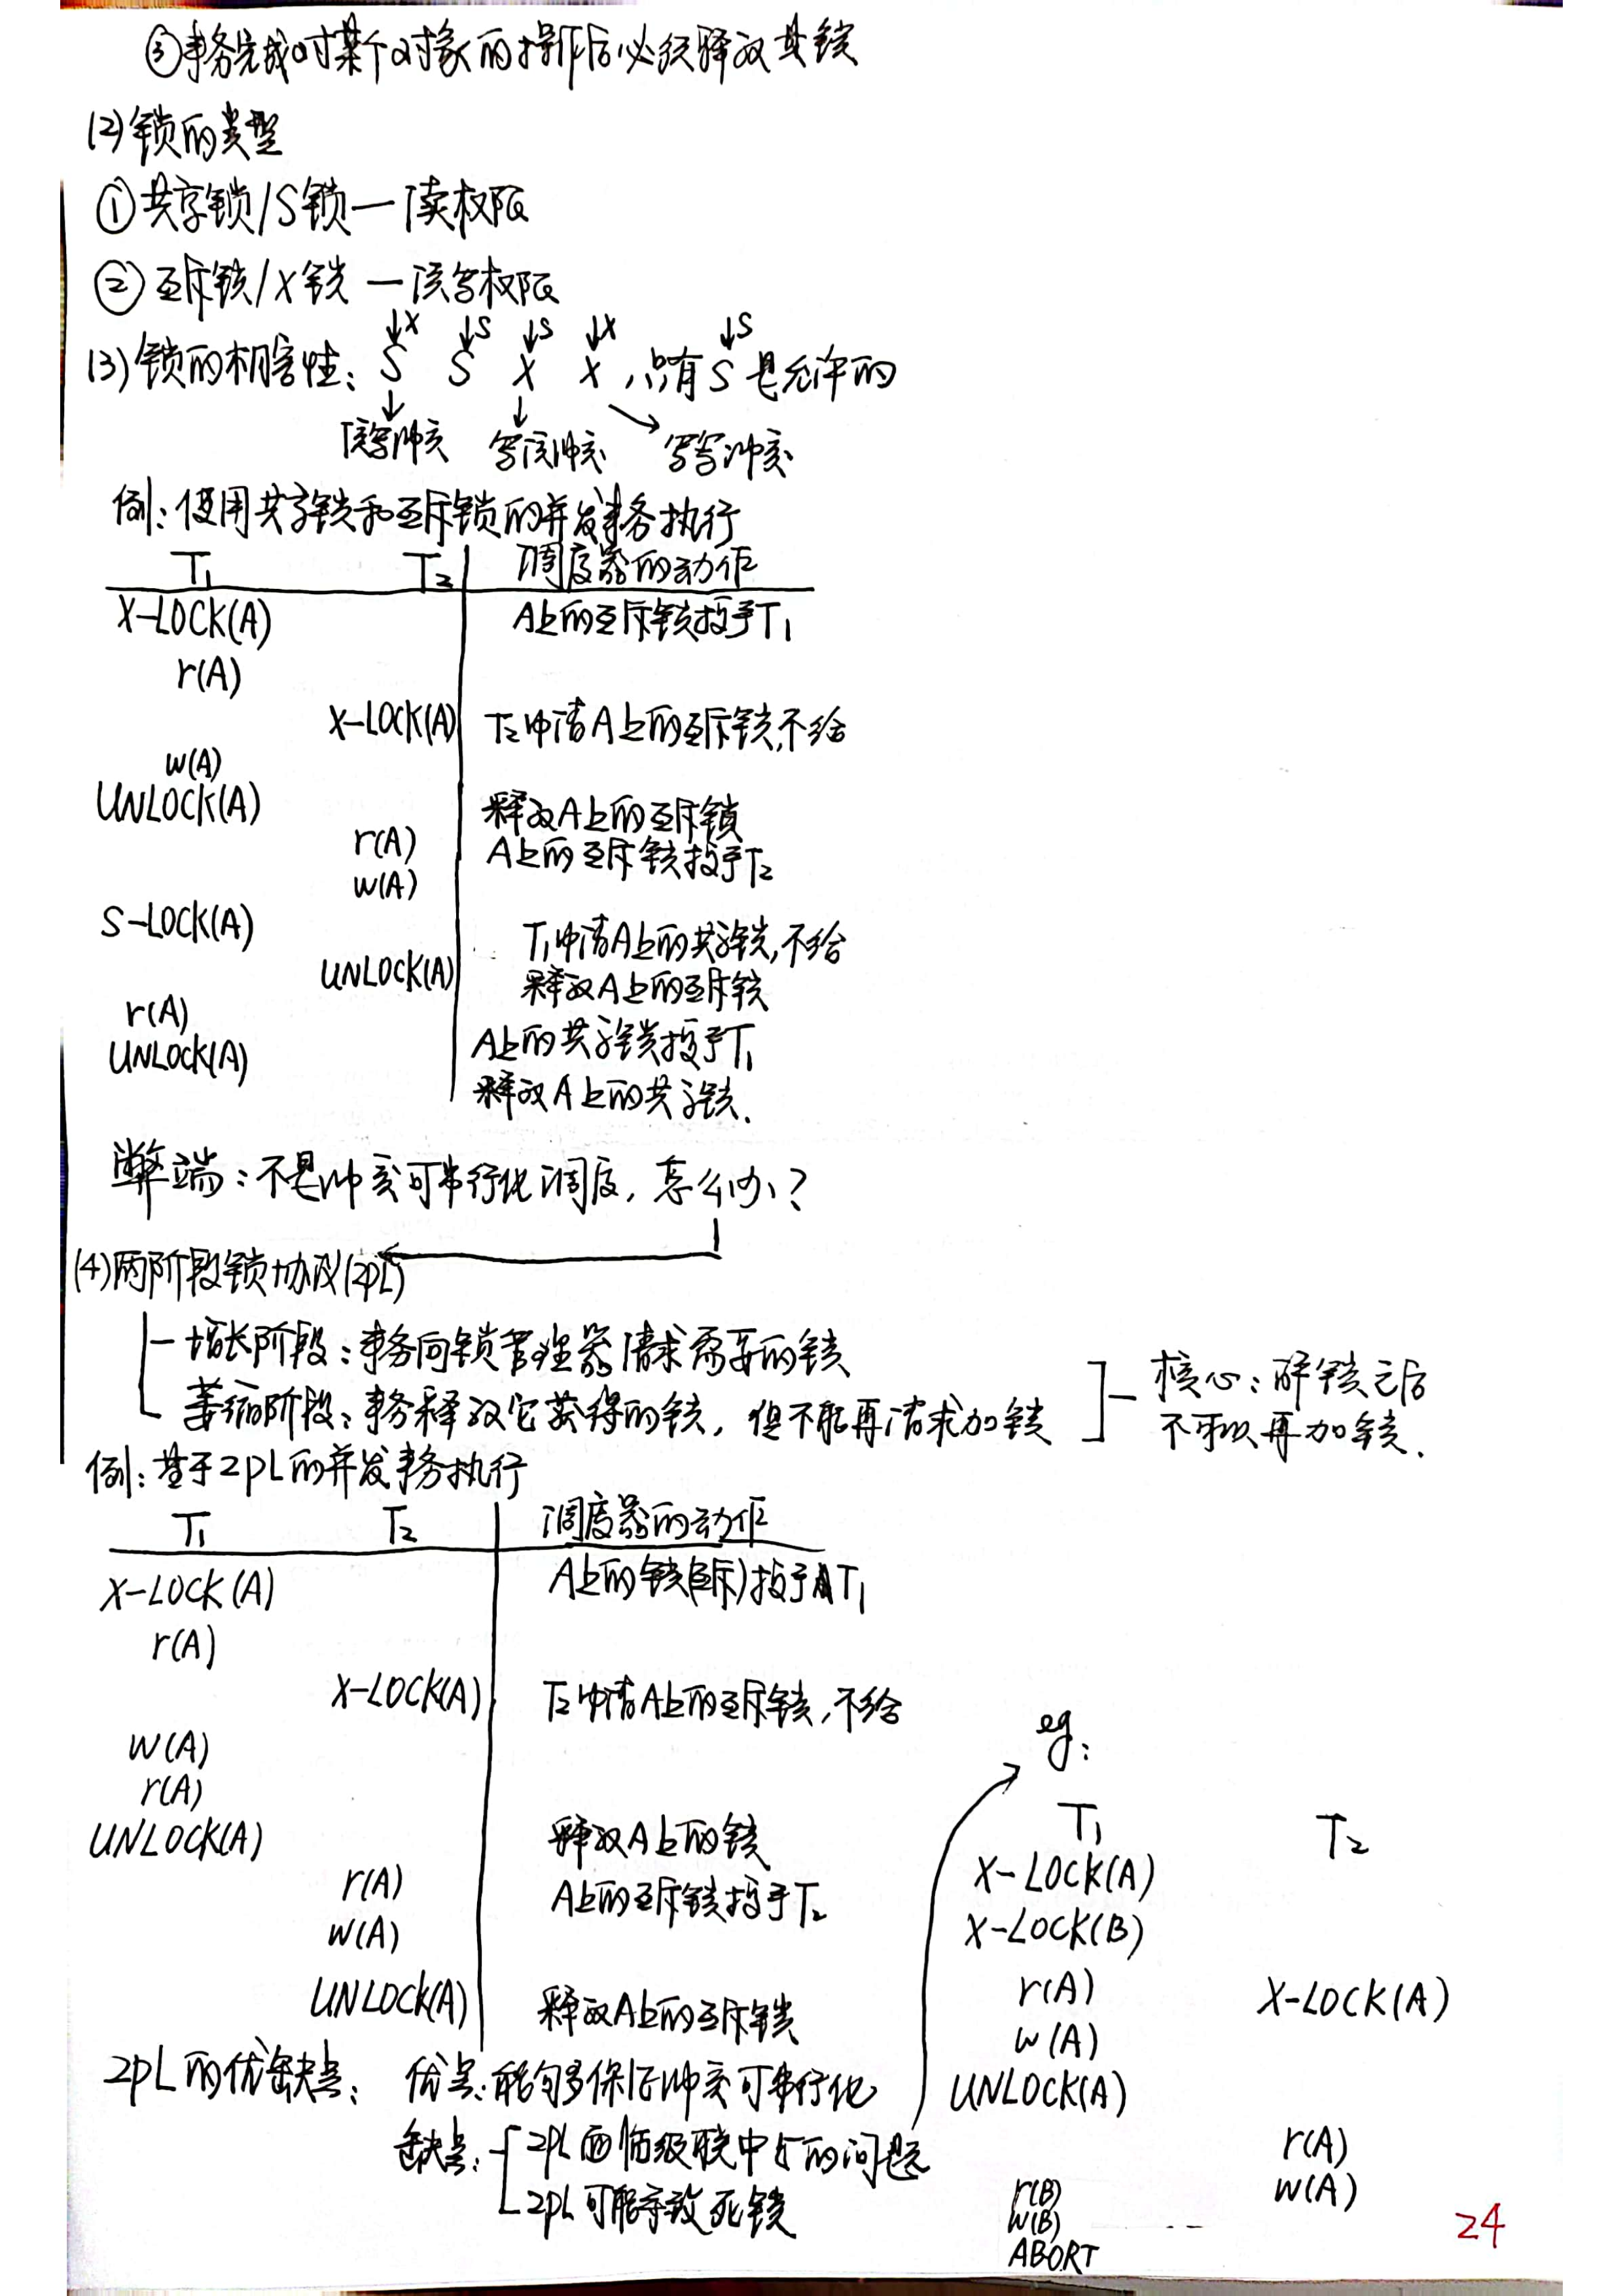 ③事务完成对某个对象的操作后必须释放其锁
(2)锁的类型
①共享锁/S锁—读权限
②互斥锁/X锁—读写权限
↓X ↓S ↓S ↓X ↓S
(3)锁的相容性: S S X X ,只有 S 是允许的
↓ ↓ ↘
读写冲突 写读冲突 写写冲突
例:使用共享锁和互斥锁的并发事务执行
T₁ T₂ 调度器的动作
X-LOCK(A) A上的互斥锁授予T₁
r(A)
X-LOCK(A) T₂申请A上的互斥锁,不给
w(A)
UNLOCK(A) 释放A上的互斥锁
r(A) A上的互斥锁授予T₂
w(A)
S-LOCK(A) T₁申请A上的共享锁,不给
UNLOCK(A) 释放A上的互斥锁
r(A) A上的共享锁授予T₁
UNLOCK(A) 释放A上的共享锁.
弊端:不是冲突可串行化调度,怎么办?
(4)两阶段锁协议(2PL)
增长阶段:事务向锁管理器请求需要的锁
萎缩阶段:事务释放它获得的锁,但不能再请求加锁
核心:解锁之后
不可以再加锁.
例:基于2PL的并发事务执行
T₁ T₂ 调度器的动作
X-LOCK(A) A上的锁(互斥)授予T₁
r(A)
X-LOCK(A) T₂申请A上的互斥锁,不给
W(A)
r(A)
UNLOCK(A) 释放A上的锁
r(A) A上的互斥锁授予T₂
W(A)
UNLOCK(A) 释放A上的互斥锁
2PL的优缺点: 优点:能够多保证冲突可串行化
缺点: 2PL面临级联中止的问题
2PL可能导致死锁
eg:
T₁ T₂
X-LOCK(A)
X-LOCK(B)
r(A) X-LOCK(A)
w(A)
UNLOCK(A)
r(A)
r(B) w(A)
W(B)
ABORT
24